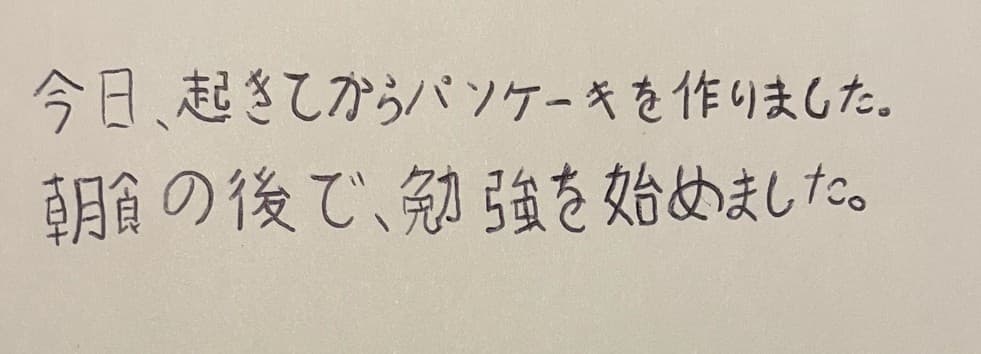 今日、起きてからパンケーキを作りました。
朝食の後で、勉強を始めました。